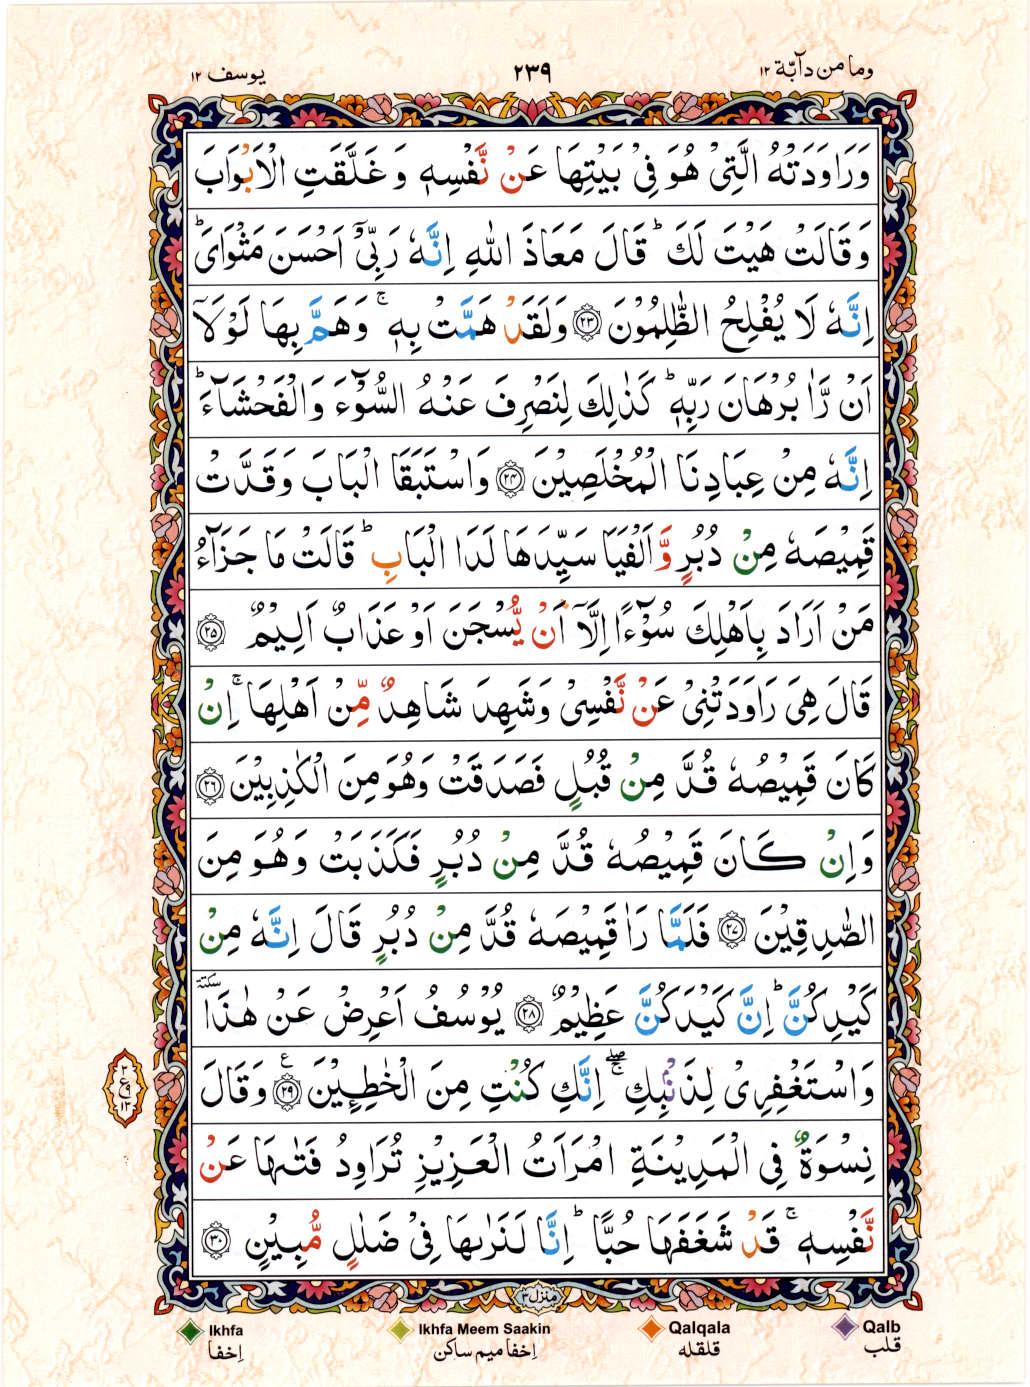 وما من دآبّة ١٢
٢٣٩
يوسف ١٢
وَرَاوَدَتْهُ الَّتِیْ هُوَ فِیْ بَیْتِهَا عَنْ نَّفْسِهٖ وَ غَلَّقَتِ الْاَبْوَابَ
وَقَالَتْ هَیْتَ لَكَ ؕ قَالَ مَعَاذَ اللّٰهِ اِنَّهٗ رَبِّیْۤ اَحْسَنَ مَثْوَایَ ؕ
اِنَّهٗ لَا یُفْلِحُ الظّٰلِمُوْنَ ﴿۲۳﴾ وَلَقَدْ هَمَّتْ بِهٖ ۚ وَهَمَّ بِهَا لَوْلَاۤ
اَنْ رَّاٰ بُرْهَانَ رَبِّهٖ ؕ كَذٰلِكَ لِنَصْرِفَ عَنْهُ السُّوْٓءَ وَالْفَحْشَآءَ ؕ
اِنَّهٗ مِنْ عِبَادِنَا الْمُخْلَصِیْنَ ﴿۲۴﴾ وَاسْتَبَقَا الْبَابَ وَقَدَّتْ
قَمِیْصَهٗ مِنْ دُبُرٍ وَّ اَلْفَیَا سَیِّدَهَا لَدَا الْبَابِ ؕ قَالَتْ مَا جَزَآءُ
مَنْ اَرَادَ بِاَهْلِكَ سُوْٓءًا اِلَّاۤ اَنْ یُّسْجَنَ اَوْ عَذَابٌ اَلِیْمٌ ﴿۲۵﴾
قَالَ هِیَ رَاوَدَتْنِیْ عَنْ نَّفْسِیْ وَشَهِدَ شَاهِدٌ مِّنْ اَهْلِهَا ۚ اِنْ
كَانَ قَمِیْصُهٗ قُدَّ مِنْ قُبُلٍ فَصَدَقَتْ وَهُوَ مِنَ الْكٰذِبِیْنَ ﴿۲۶﴾
وَاِنْ كَانَ قَمِیْصُهٗ قُدَّ مِنْ دُبُرٍ فَكَذَبَتْ وَهُوَ مِنَ
الصّٰدِقِیْنَ ﴿۲۷﴾ فَلَمَّا رَاٰ قَمِیْصَهٗ قُدَّ مِنْ دُبُرٍ قَالَ اِنَّهٗ مِنْ
كَیْدِكُنَّ ؕ اِنَّ كَیْدَكُنَّ عَظِیْمٌ ﴿۲۸﴾ یُوْسُفُ اَعْرِضْ عَنْ هٰذَا سكتة
وَاسْتَغْفِرِیْ لِذَنْۢبِكِ ۖۚ اِنَّكِ كُنْتِ مِنَ الْخٰطِـِٕیْنَ ﴿۲۹﴾ ع وَقَالَ
نِسْوَةٌ فِی الْمَدِیْنَةِ امْرَاَتُ الْعَزِیْزِ تُرَاوِدُ فَتٰىهَا عَنْ
نَّفْسِهٖ ۚ قَدْ شَغَفَهَا حُبًّا ؕ اِنَّا لَنَرٰىهَا فِیْ ضَلٰلٍ مُّبِیْنٍ ﴿۳۰﴾
منزل ٣
Ikhfa
إخفا
Ikhfa Meem Saakin
إخفا ميم ساكن
Qalqala
قلقله
Qalb
قلب